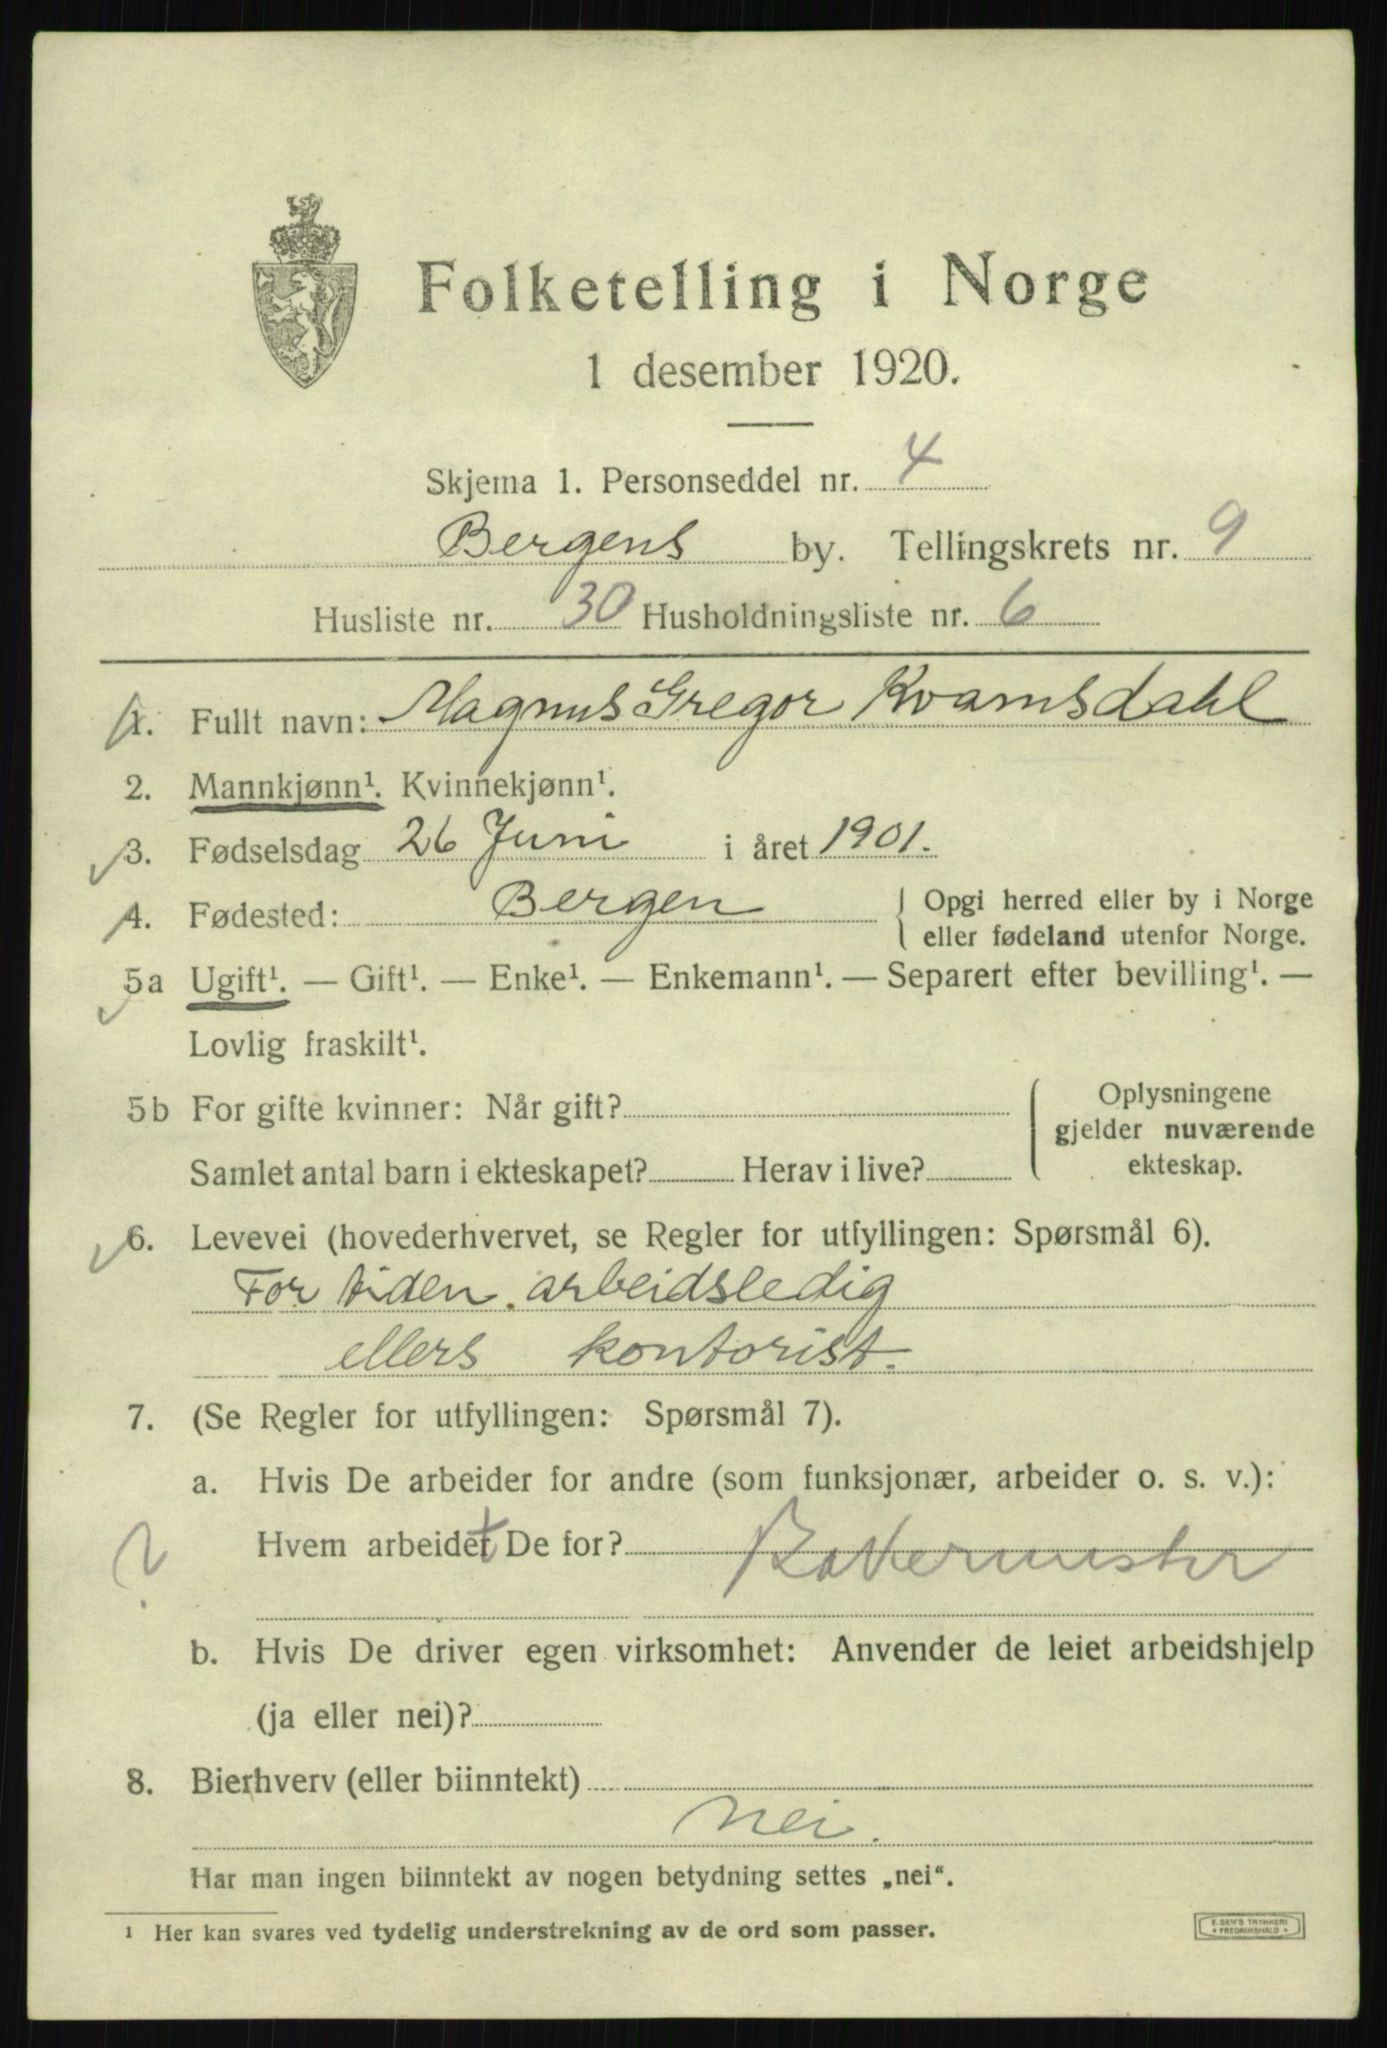 Folketelling i Norge
1 desember 1920.
Skjema 1. Personseddel nr. 4
Bergens by. Tellingskrets nr. 9
Husliste nr. 30 Husholdningsliste nr. 6
1. Fullt navn: Magnus Gregor Kvamsdahl
2. Mannkjønn¹. Kvinnekjønn¹.
3. Fødselsdag 26 Juni i året 1901.
4. Fødested: Bergen { Opgi herred eller by i Norge
eller fødeland utenfor Norge.
5a Ugift¹. — Gift¹. — Enke¹. — Enkemann¹. — Separert efter bevilling¹. —
Lovlig fraskilt¹.
5b For gifte kvinner: Når gift? { Oplysningene
gjelder nuværende
Samlet antal barn i ekteskapet? Herav i live? ekteskap.
6. Levevei (hovederhvervet, se Regler for utfyllingen: Spørsmål 6).
For tiden arbeidsledig
ellers kontorist.
7. (Se Regler for utfyllingen: Spørsmål 7).
a. Hvis De arbeider for andre (som funksjonær, arbeider o. s. v.):
? Hvem arbeidet De for?
b. Hvis De driver egen virksomhet: Anvender de leiet arbeidshjelp
(ja eller nei)?
8. Bierhverv (eller biinntekt)
nei.
Har man ingen biinntekt av nogen betydning settes „nei“.
¹ Her kan svares ved tydelig understrekning av de ord som passer.
E. SEM'S TRYKKERI
FREDRIKSHALD